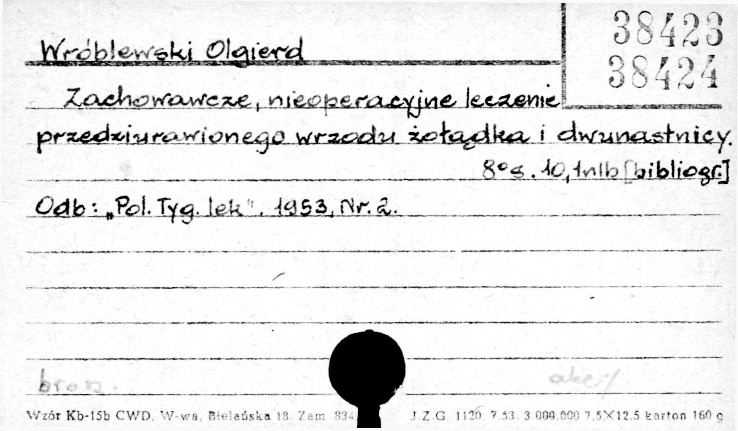 38423
38424
Wróblewski Olgierd
Zachowawcze, nieoperacyjne leczenie
przedziurawionego wrzodu żołądka i dwunastnicy.
8° s. 10, 1nlb [bibliogr.]
Odb: „Pol. Tyg. lek". 1953, Nr. 2.
brosz.
Wzór Kb-15b CWD, W-wa, Bielańska 18. Zam 834 J.Z.G. 1120. 7.53. 3.000.000 7,5×12,5 karton 160 g